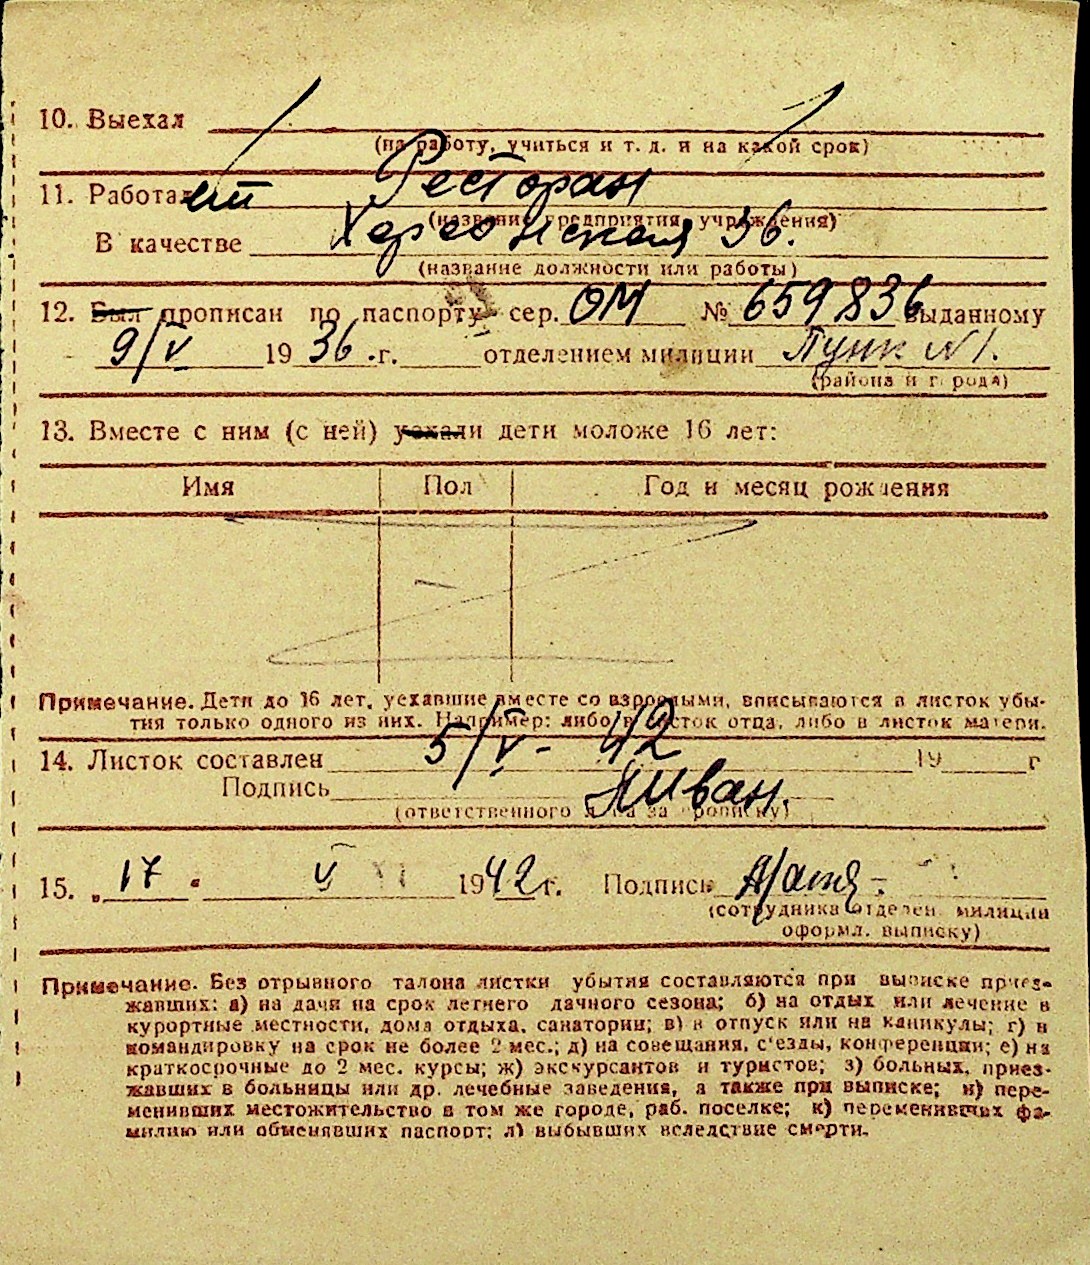 10. Выехал
(на работу, учиться и т. д. и на какой срок)
11. Работает Ресторан
(название предприятия, учреждения)
В качестве Херсонская 36.
(название должности или работы)
12. Был прописан по паспорту сер. ОМ № 659836 выданному
9/V 1936.г. отделением милиции Пунк N1.
(района и города)
13. Вместе с ним (с ней) уехали дети моложе 16 лет:
Имя Пол Год и месяц рождения
Примечание. Дети до 16 лет, уехавшие вместе со взрослыми, вписываются в листок убы-
тия только одного из них. Например: либо в листок отца, либо в листок матери.
14. Листок составлен 5/V - 42 19 г
Подпись
(ответственного лица за прописку)
15. „17" V 1942г. Подпись
(сотрудника отделен. милиции
оформл. выписку)
Примечание. Без отрывного талона листки убытия составляются при выписке приез-
жавших: а) на дачи на срок летнего дачного сезона; б) на отдых или лечение в
курортные местности, дома отдыха, санатории; в) в отпуск или на каникулы; г) в
командировку на срок не более 2 мес.; д) на совещания, с'езды, конференции; е) на
краткосрочные до 2 мес. курсы; ж) экскурсантов и туристов; з) больных, приез-
жавших в больницы или др. лечебные заведения, а также при выписке; и) пере-
менивших местожительство в том же городе, раб. поселке; к) переменивших фа-
милию или обменявших паспорт; л) выбывших вследствие смерти.